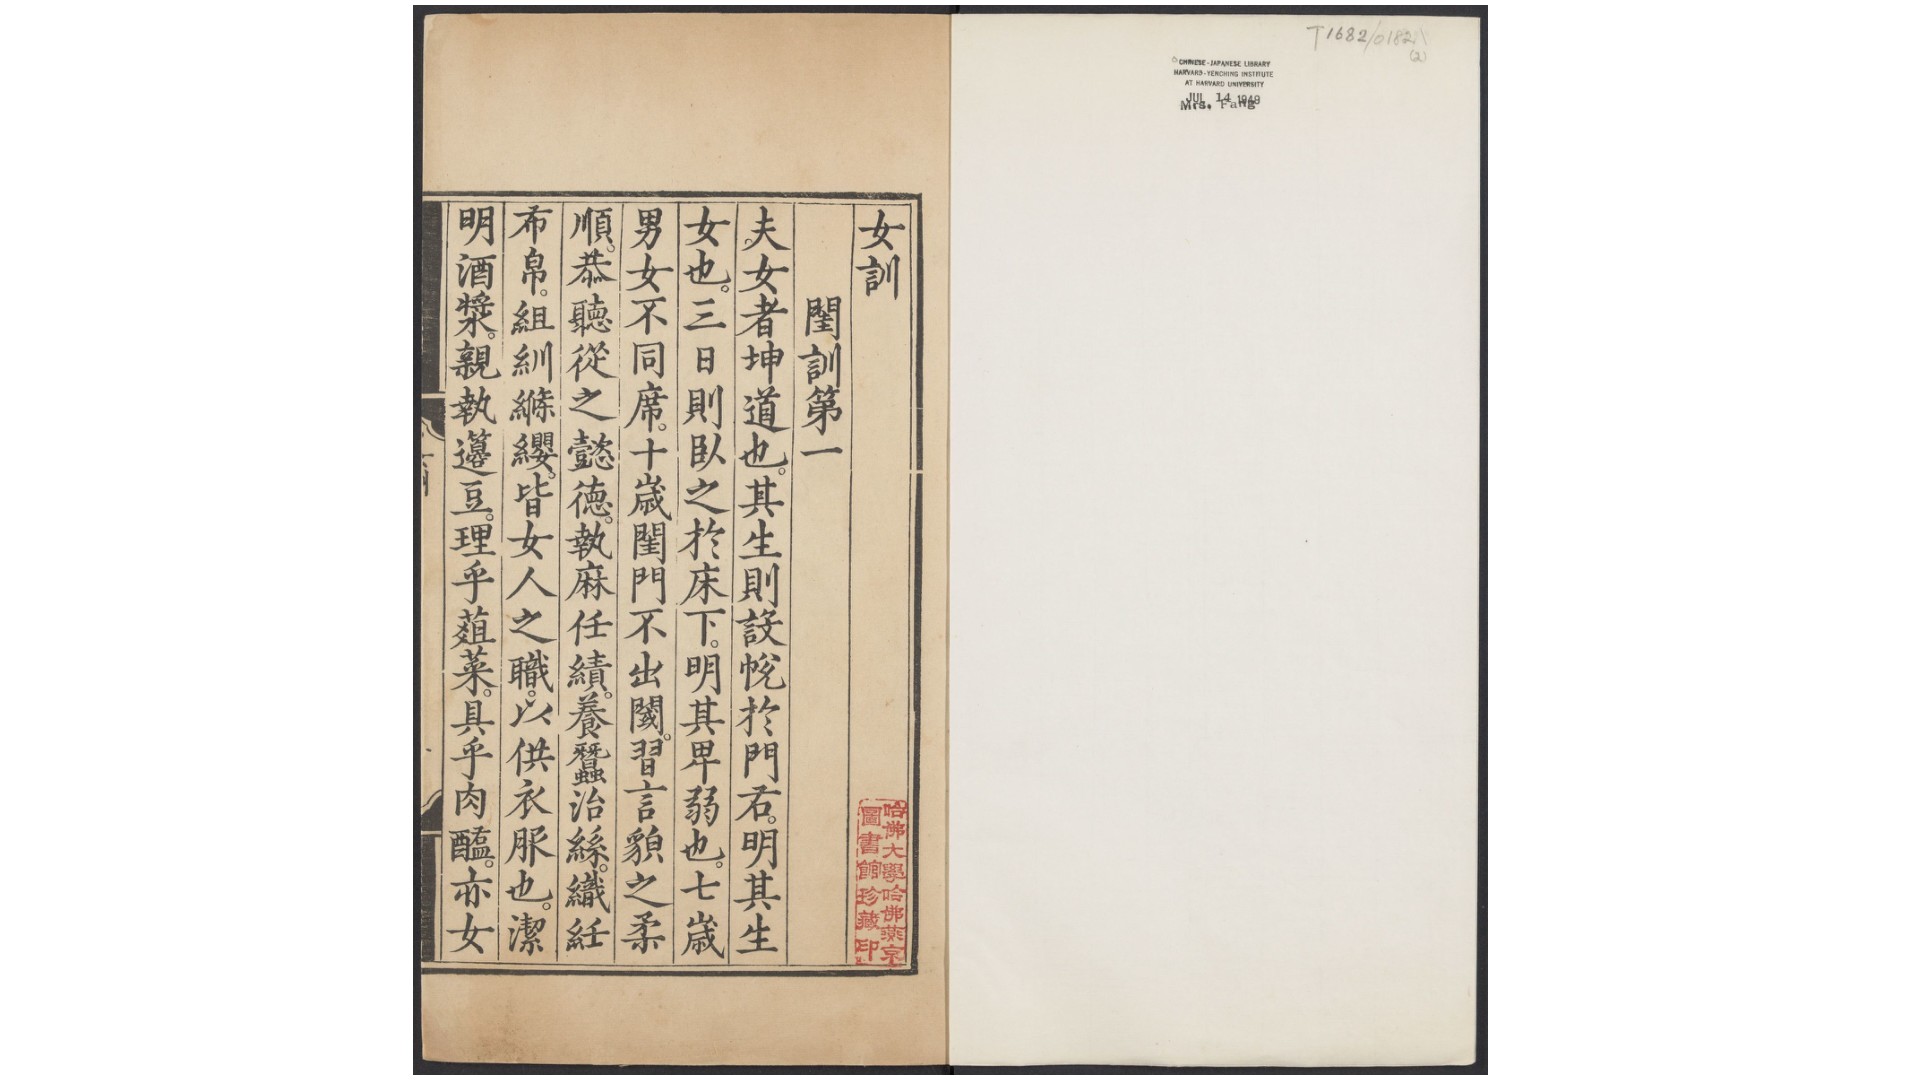 T1682/0182
(2)
CHINESE-JAPANESE LIBRARY
HARVARD-YENCHING INSTITUTE
AT HARVARD UNIVERSITY
JUL 14 1949
Mrs. Fang
女訓
哈佛大學哈佛燕京
圖書館珍藏印
閨訓第一
夫女者坤道也。其生則設帨於門右。明其生
女也。三日則臥之於床下。明其卑弱也。七歲
男女不同席。十歲閨門不出閾。習言貌之柔
順。恭聽從之懿德。執麻任績。養蠶治絲。織紝
布帛。組紃縧纓。皆女人之職。以供衣服也。潔
明酒漿。親執邊豆。理乎葅菜。具乎肉醢。亦女